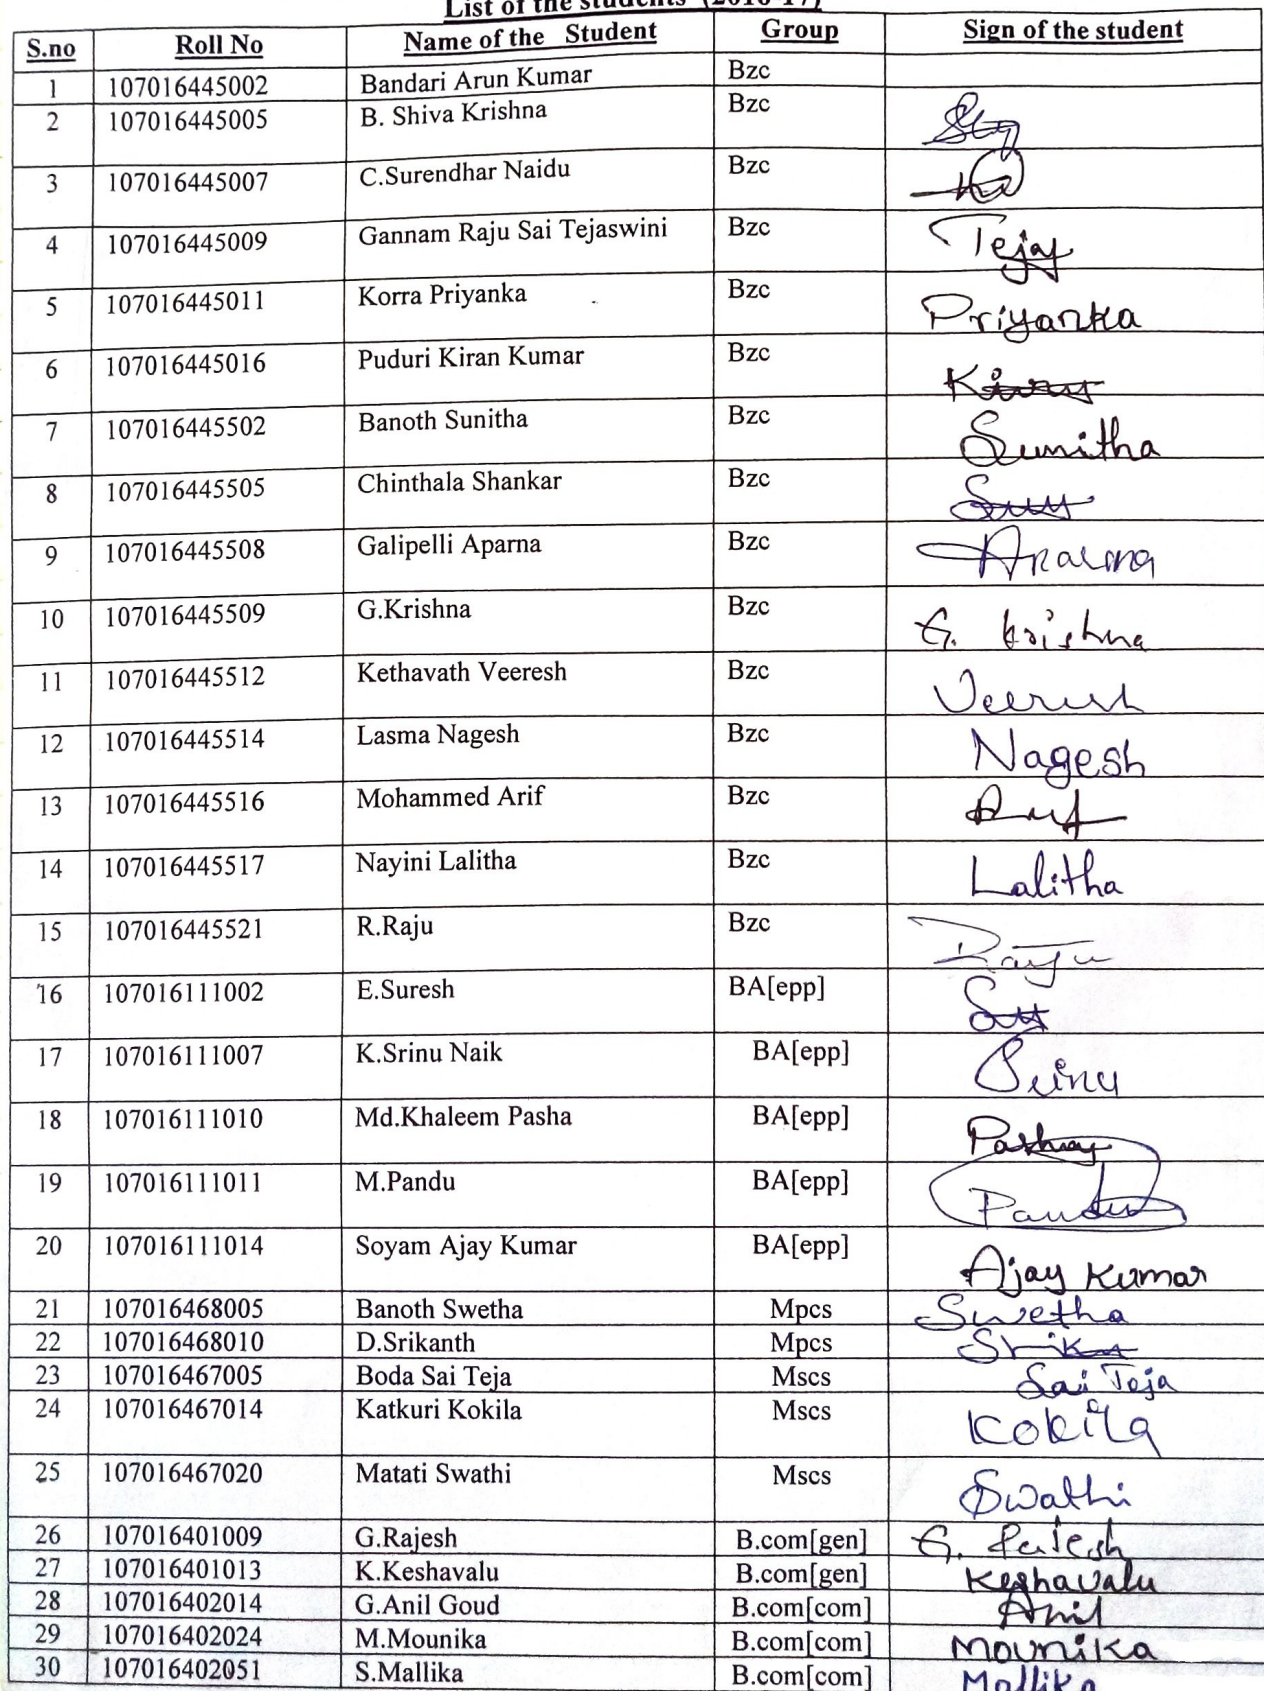 List of the students (2016-17)
S.no Roll No Name of the Student Group Sign of the student
1 107016445002 Bandari Arun Kumar Bzc
2 107016445005 B. Shiva Krishna Bzc
3 107016445007 C.Surendhar Naidu Bzc
4 107016445009 Gannam Raju Sai Tejaswini Bzc
5 107016445011 Korra Priyanka Bzc Priyanka
6 107016445016 Puduri Kiran Kumar Bzc
7 107016445502 Banoth Sunitha Bzc Sunitha
8 107016445505 Chinthala Shankar Bzc
9 107016445508 Galipelli Aparna Bzc
10 107016445509 G.Krishna Bzc G. krishna
11 107016445512 Kethavath Veeresh Bzc Veeresh
12 107016445514 Lasma Nagesh Bzc Nagesh
13 107016445516 Mohammed Arif Bzc
14 107016445517 Nayini Lalitha Bzc Lalitha
15 107016445521 R.Raju Bzc Raju
16 107016111002 E.Suresh BA[epp]
17 107016111007 K.Srinu Naik BA[epp] Srinu
18 107016111010 Md.Khaleem Pasha BA[epp]
19 107016111011 M.Pandu BA[epp] Pandu
20 107016111014 Soyam Ajay Kumar BA[epp] Ajay Kumar
21 107016468005 Banoth Swetha Mpcs Swetha
22 107016468010 D.Srikanth Mpcs
23 107016467005 Boda Sai Teja Mscs Sai Teja
24 107016467014 Katkuri Kokila Mscs Kokila
25 107016467020 Matati Swathi Mscs Swathi
26 107016401009 G.Rajesh B.com[gen] G. Rajesh
27 107016401013 K.Keshavalu B.com[gen] Keshavalu
28 107016402014 G.Anil Goud B.com[com] Anil
29 107016402024 M.Mounika B.com[com] Mounika
30 107016402051 S.Mallika B.com[com] Mallika